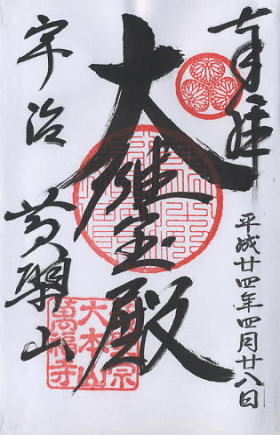 奉拝
平成廿四年四月廿八日
大雄宝殿
宇治
黄檗山
黄檗宗
大本山
萬福寺